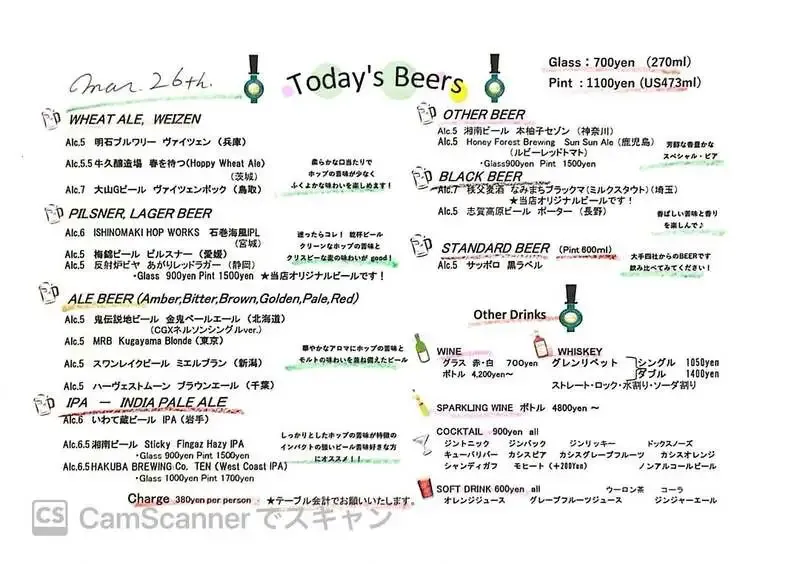 Mar. 26th.
Today's Beers
Glass：700yen （270ml）
Pint ：1100yen (US473ml)
WHEAT ALE, WEIZEN
Alc.5 明石ブルワリー ヴァイツェン（兵庫）
Alc.5.5 牛久醸造場 春を待つ(Hoppy Wheat Ale)
（茨城）
Alc.7 大山Gビール ヴァイツェンボック（鳥取）
柔らかな口当たりで
ホップの苦味が少なく
ふくよかな味わいを楽しめます！
PILSNER, LAGER BEER
Alc.6 ISHINOMAKI HOP WORKS 石巻海風IPL
（宮城）
Alc.5 梅錦ビール ピルスナー（愛媛）
Alc.5 反射炉ビヤ あがりレッドラガー（静岡）
・Glass 900yen Pint 1500yen ★当店オリジナルビールです！
迷ったらコレ！ 乾杯ビール
クリーンなホップの苦味と
クリスピーな麦の味わいが good！
ALE BEER (Amber,Bitter,Brown,Golden,Pale,Red)
Alc.5 鬼伝説地ビール 金鬼ペールエール（北海道）
(CGXネルソンシングルver.)
Alc.5 MRB Kugayama Blonde（東京）
Alc.5 スワンレイクビール ミエルブラン（新潟）
Alc.5 ハーヴェストムーン ブラウンエール（千葉）
華やかなアロマにホップの苦味と
モルトの味わいを兼ね備えたビール
IPA － INDIA PALE ALE
Alc.6 いわて蔵ビール IPA（岩手）
Alc.6.5 湘南ビール Sticky Fingaz Hazy IPA
・Glass 900yen Pint 1500yen
Alc.6.5 HAKUBA BREWING Co. TEN (West Coast IPA)
・Glass 1000yen Pint 1700yen
しっかりとしたホップの苦味が特徴の
インパクトの強いビール苦味好きな方
にオススメ！！
Charge 380yen per person ・★テーブル会計でお願いいたします。
OTHER BEER
Alc.5 湘南ビール 本柚子セゾン（神奈川）
Alc.5 Honey Forest Brewing Sun Sun Ale（鹿児島）
（ルビーレッドトマト）
・Glass900yen Pint 1500yen
芳醇な香豊かな
スペシャル・ビア
BLACK BEER
Alc.7 秩父麦酒 なみまちブラックマ(ミルクスタウト)（埼玉）
★当店オリジナルビールです！
Alc.5 志賀高原ビール ポーター（長野）
香ばしい苦味と香り
を楽しんで♪
STANDARD BEER (Pint 600ml)
Alc.5 サッポロ 黒ラベル
大手四社からのBEERです
飲み比べてみてください！
Other Drinks
WINE
グラス 赤・白 700yen
ボトル 4,200yen～
WHISKEY
グレンリベット シングル 1050yen
ダブル 1400yen
ストレート・ロック・水割り・ソーダ割り
SPARKLING WINE ボトル 4800yen ～
COCKTAIL 900yen all
ジントニック ジンバック ジンリッキー ドックスノーズ
キューバリバー カシスビア カシスグレープフルーツ カシスオレンジ
シャンディガフ モヒート（＋200Yen） ノンアルコールビール
SOFT DRINK 600yen all ウーロン茶 コーラ
オレンジジュース グレープフルーツジュース ジンジャーエール
CS CamScanner でスキャン